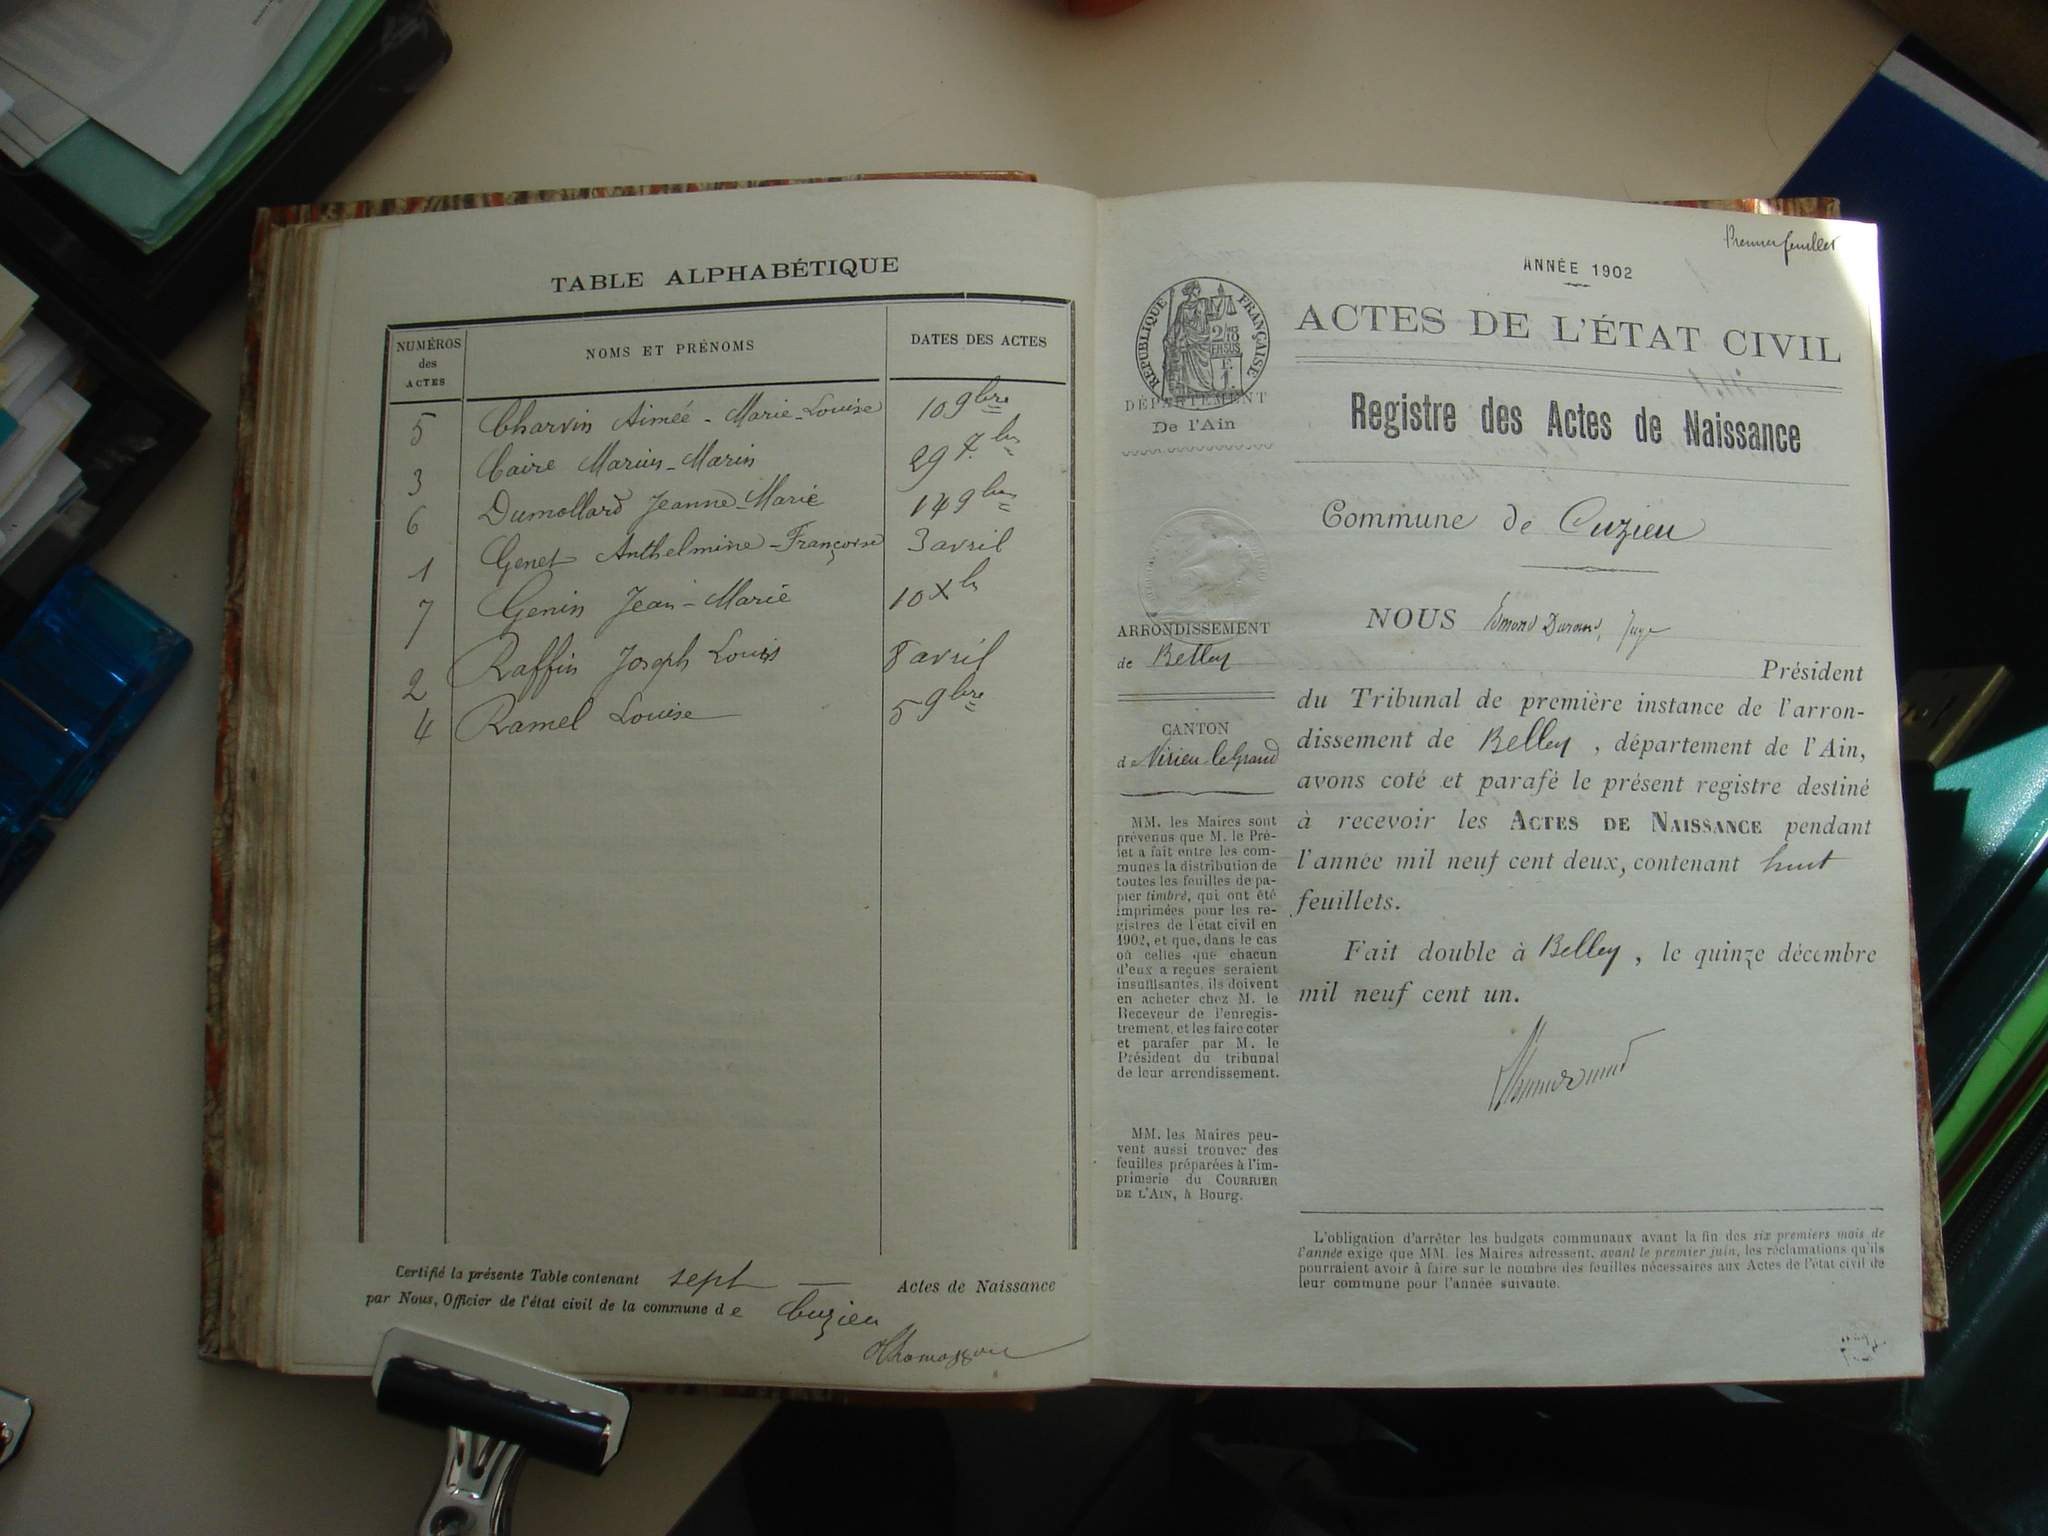 TABLE ALPHABÉTIQUE
NUMÉROS des ACTES
NOMS ET PRÉNOMS
DATES DES ACTES
5 Charvin Aimée - Marie-Louise 10 9bre
3 Caire Marius-Marin 29 7.bre
6 Dumollard Jeanne-Marie 14 9bre
1 Genet Anthelmine-Françoise 3 avril
7 Genin Jean-Marie 10 Xbre
2 Raffin Joseph Louis 8 avril
4 Ramel Louise 5 9bre
Certifié la présente Table contenant sept — Actes de Naissance
par Nous, Officier de l'état civil de la commune de Cuzieu
Premier feuillet
ANNÉE 1902
ACTES DE L'ÉTAT CIVIL
Registre des Actes de Naissance
Commune de Cuzieu
RÉPUBLIQUE FRANÇAISE
DÉPARTEMENT
De l'Ain
ARRONDISSEMENT
de Belley
CANTON
de Virieu-le-Grand
MM. les Maires sont
prévenus que M. le Pré-
fet a fait entre les com-
munes la distribution de
toutes les feuilles de pa-
pier timbré, qui ont été
imprimées pour les re-
gistres de l'état civil en
1902, et que, dans le cas
où celles que chacun
d'eux a reçues seraient
insuffisantes, ils doivent
en acheter chez M. le
Receveur de l'enregis-
trement, et les faire coter
et parafer par M. le
Président du tribunal
de leur arrondissement.
MM. les Maires peu-
vent aussi trouver des
feuilles préparées à l'im-
primerie du COURRIER
DE L'AIN, à Bourg.
NOUS Edmond Durand, Juge
Président
du Tribunal de première instance de l'arron-
dissement de Belley, département de l'Ain,
avons coté et parafé le présent registre destiné
à recevoir les ACTES DE NAISSANCE pendant
l'année mil neuf cent deux, contenant huit
feuillets.
Fait double à Belley, le quinze décembre
mil neuf cent un.
L'obligation d'arrêter les budgets communaux avant la fin des six premiers mois de
l'année exige que MM. les Maires adressent, avant le premier juin, les réclamations qu'ils
pourraient avoir à faire sur le nombre des feuilles nécessaires aux Actes de l'état civil de
leur commune pour l'année suivante.